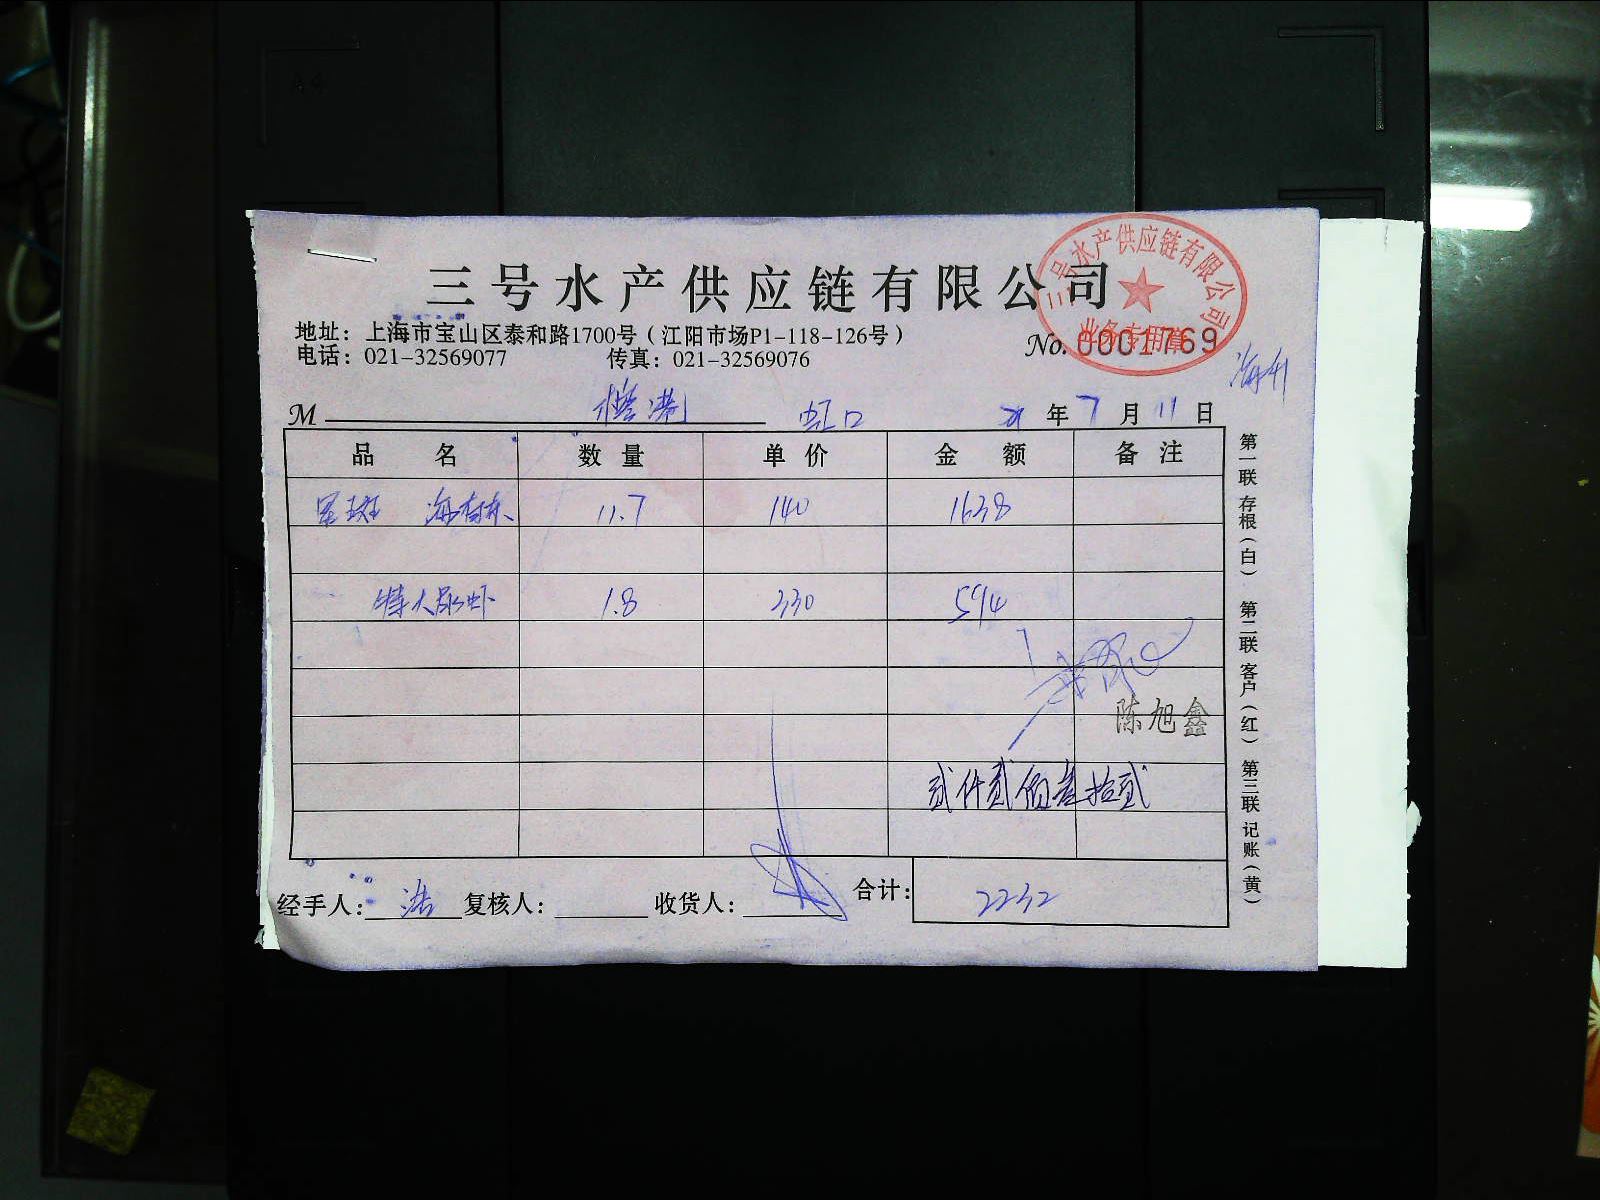 三号水产供应链有限公司
三号水产供应链有限公司
业务专用章
地址：上海市宝山区泰和路1700号（江阳市场P1-118-126号）
电话：021-32569077 传真：021-32569076
No. 0001769
M 虹口 21 年 7 月 11 日
品名 数量 单价 金额 备注
星斑 11.7 140 1638
特人尿虾 1.8 330 594
陈旭鑫
贰仟贰佰叁拾贰
经手人： 浩 复核人： 收货人： 合计： 2232
第一联 存根（白） 第二联 客户（红） 第三联 记账（黄）